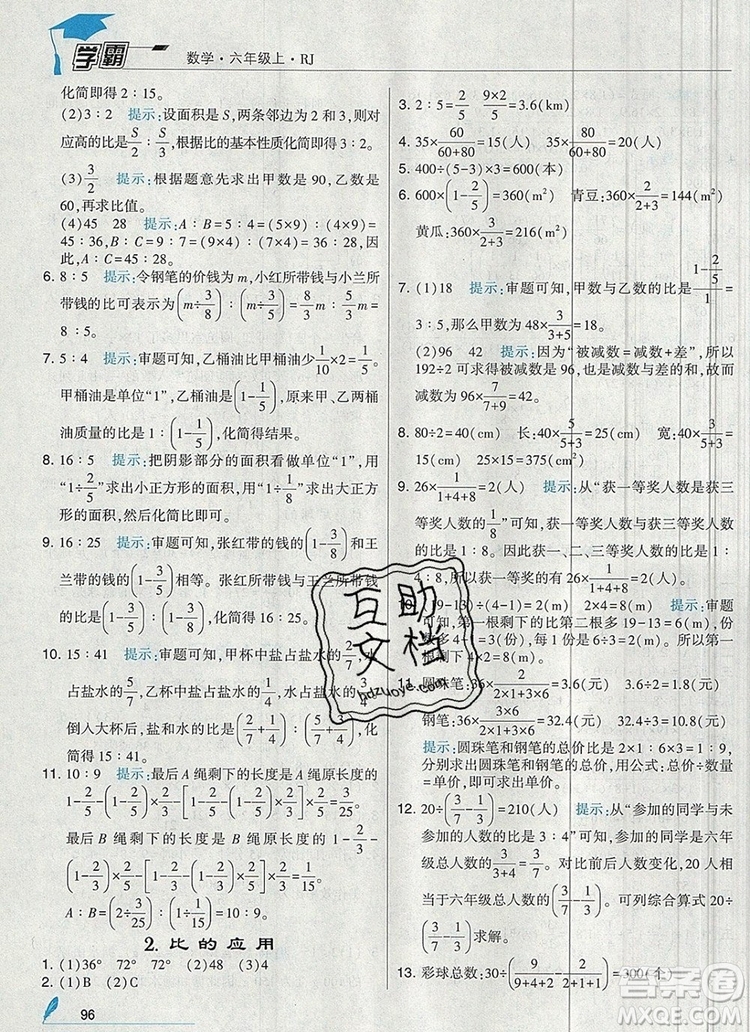 学霸 数学·六年级上·RJ
化简即得 2∶15。
(2)3∶2 提示:设面积是 S,两条邻边为 2 和 3,则对
应高的比是 S/2∶S/3,根据比的基本性质化简即得。
(3)3/2 提示:根据题意先求出甲数是 90,乙数是
60,再求比值。
(4)45 28 提示:A∶B=5∶4=(5×9)∶(4×9)=
45∶36,B∶C=9∶7=(9×4)∶(7×4)=36∶28,因
此,A∶C=45∶28。
6. 8∶5 提示:令钢笔的价钱为 m,小红所带钱与小兰所
带钱的比可表示为(m÷3/8)∶(m÷3/5)=5/3 m∶3/5 m=
8∶5。
7. 5∶4 提示:审题可知,乙桶油比甲桶油少 1/10×2=1/5,
甲桶油是单位“1”,乙桶油是(1-1/5),所以甲、乙两桶
油质量的比是 1∶(1-1/5),化简得结果。
8. 16∶5 提示:把阴影部分的面积看做单位“1”,用
“1÷1/5”求出小正方形的面积,用“1÷1/8”求出大正方
形的面积,然后化简比即可。
9. 16∶25 提示:审题可知,张红带的钱的(1-3/8)和王
兰带的钱的(1-3/5)相等。张红带的钱与王兰带的钱
的比是(1-3/5)∶(1-3/8),化简得 16∶25。
10. 15∶41 提示:审题可知,甲杯中盐占盐水的 2/7,水
占盐水的 5/7,乙杯中盐占盐水的 1/4,水占盐水的 3/4,
倒入大杯后,盐和水的比是(2/7+1/4)∶(5/7+3/4),化
简得 15∶41。
11. 10∶9 提示:最后 A 绳剩下的长度是 A 绳长的
1-2/5-(1-2/5)×2/3-[1-2/5-(1-2/5)×2/3]×2/5=3/25,
最后 B 绳剩下的长度是 B 绳长的 1-2/3-
(1-2/3)×2/5-[1-2/3-(1-2/3)×2/5]×1/3=2/15。
A∶B=(2÷3/25)∶(2÷2/15)=10∶9。
2. 比的应用
1. (1)36° 72° 72° (2)48 (3)4
2. (1)B (2)C
3. 2∶5=2/5 9×2/5=3.6(km)
4. 35×60/(60+80)=15(人) 35×80/(60+80)=20(人)
5. 400÷(5-3)×3=600(本)
6. 600×(1-2/5)=360(m²) 青豆:360×2/(2+3)=144(m²)
黄瓜:360×3/(2+3)=216(m²)
7. (1)18 提示:审题可知,甲数与乙数的比是 (1-2/5)/1=
3∶5,那么甲数为 48×3/(3+5)=18。
(2)96 42 提示:因为“被减数=减数+差”,所以
192÷2 可求得被减数是 96,也是减数与差的和,故而
减数为 96×7/(7+9)=42。
8. 80÷2=40(cm) 长:40×5/(5+3)=25(cm) 宽:40×3/(5+3)=
15(cm) 25×15=375(cm²)
9. 26×1/(1+4+8)=2(人) 提示:从“获一等奖人数是获三
等奖人数的 1/8”可知,获一等奖人数与获三等奖人数的
比是 1∶8。因此获一、二、三等奖人数的比是 1∶
4∶8,所以获一等奖的有 26×1/(1+4+8)=2(人)。
(19-13)÷(4-1)=2(m) 2×4=8(m) 提示:审题
可知,第一根剩下的比第二根多 19-13=6(m),份
数多 4-1=3(份),每份是 6÷3=2(m),所以第
一根剩下 4×2=8(m)。
11. 圆珠笔:36×2×1/(2×1+3×6)=3.6(元) 3.6÷2=1.8(元)
钢笔:36×3×6/(2×1+3×6)=32.4(元) 32.4÷3=10.8(元)
提示:圆珠笔和钢笔的总价比是 2×1∶3×6=1∶9,
分别求出圆珠笔和钢笔的总价,然后用公式:总价÷数
量=单价,即可求出单价。
12. 20÷(3/7-1/3)=210(人) 提示:从“参加的同学与未
参加的人数的比是 3∶4”可知,参加的同学是六年
级总人数的 3/(3+4)=3/7。如果有 20 人参加人数变化,相
当于六年级总人数的(3/7-1/3)。可列综合算式 20÷
(3/7-1/3)求解。
13. 彩球总数:30÷(9/(9+4+2)-2/(4+2+1)×…)=300(个)
96
互助文档
hdzuoye.com
答案圈
MXQE.COM